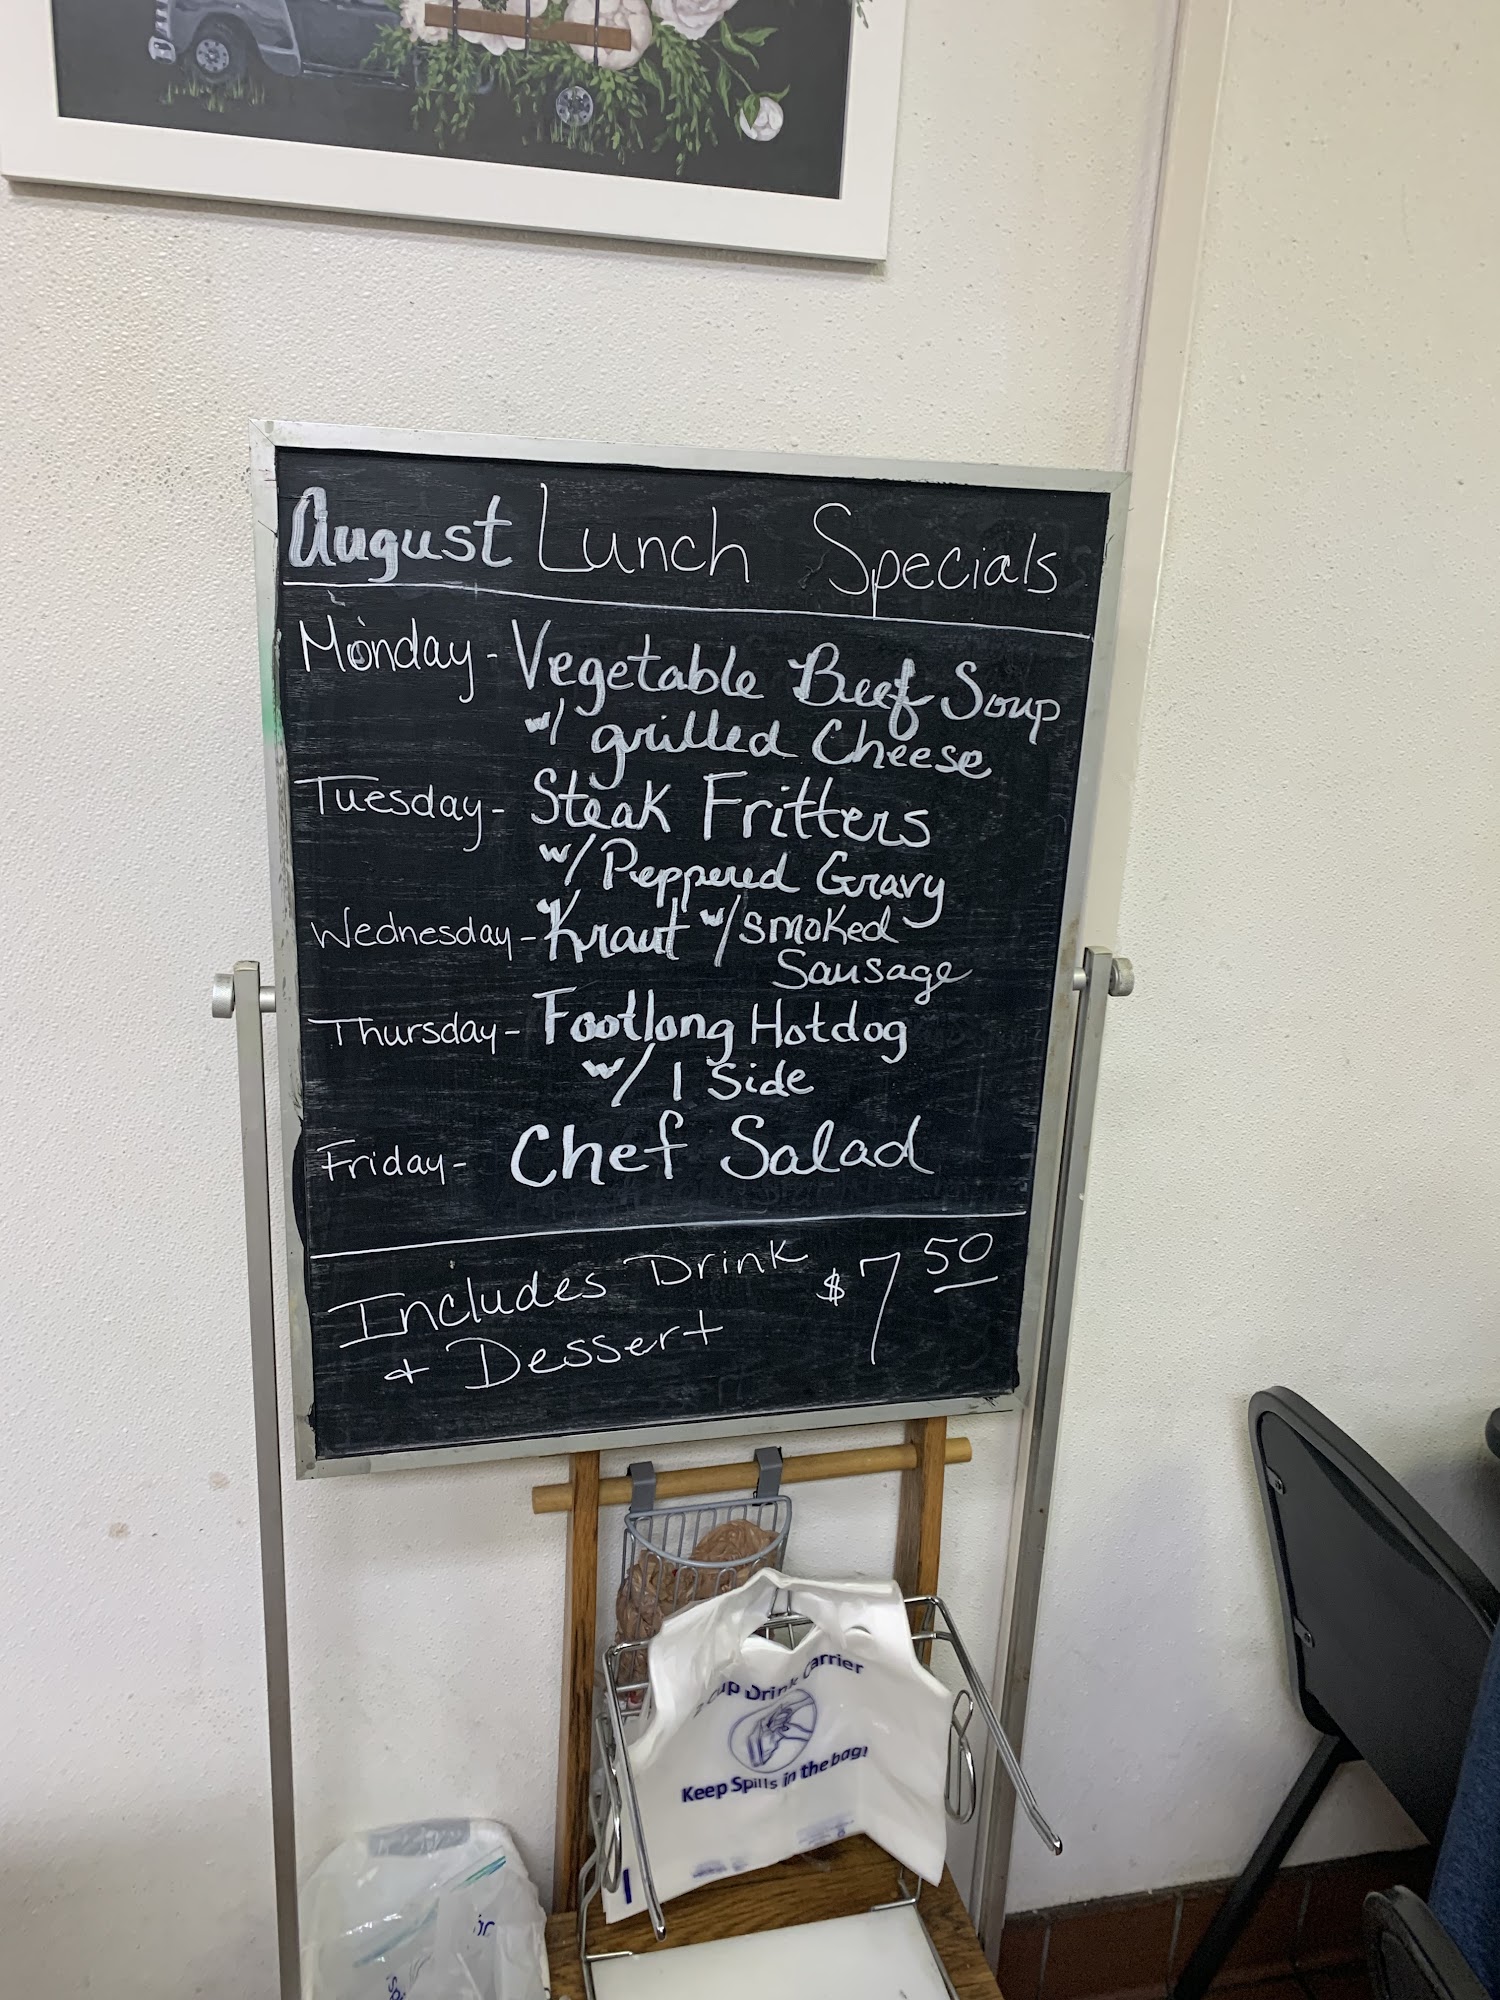 August Lunch Specials
Monday - Vegetable Beef Soup
w/ grilled Cheese
Tuesday - Steak Fritters
w/ Peppered Gravy
Wednesday - Kraut w/ smoked
Sausage
Thursday - Footlong Hotdog
w/ 1 Side
Friday - Chef Salad
Includes Drink $7 50
+ Dessert
Cup Drink Carrier
Keep Spills in the bag!